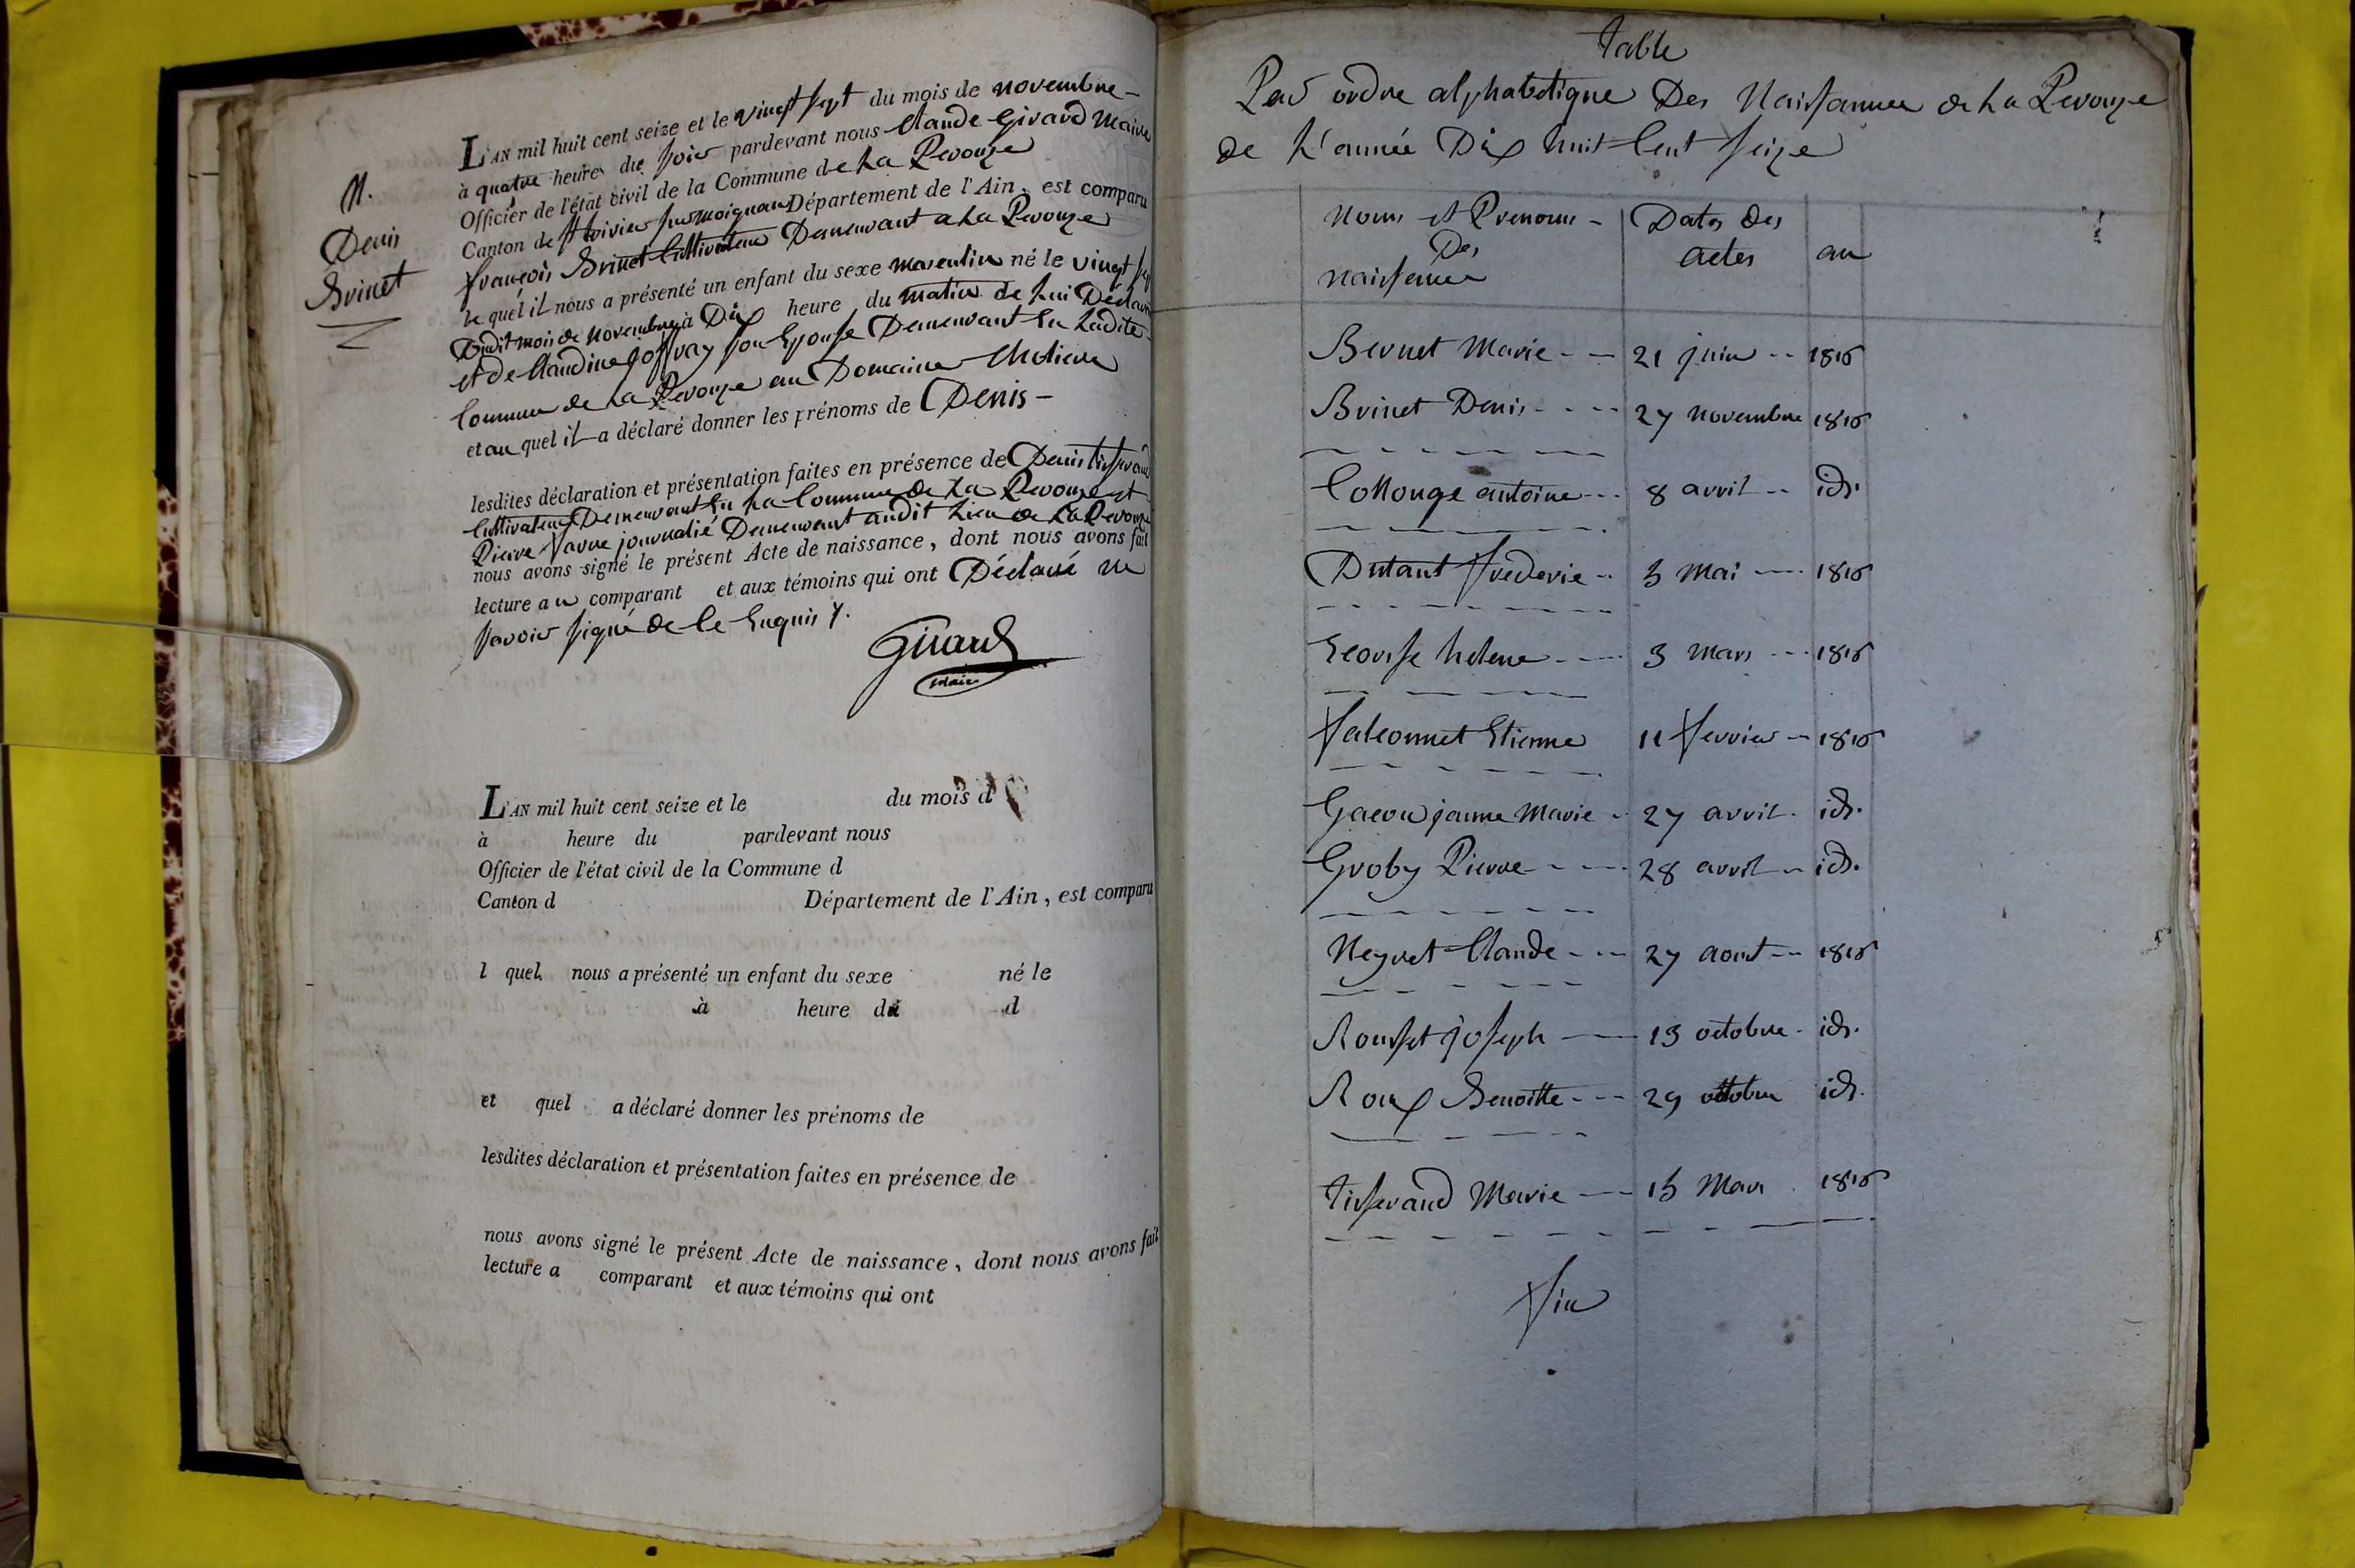 N.
Denis
Brinet
L'AN mil huit cent seize et le vingt sept du mois de novembre
à quatre heures du soir pardevant nous Claude Girard Maire
Officier de l'état civil de la Commune de La Perouze
Canton de St trivier sur moignans Département de l'Ain, est comparu
françois Brinet Cultivateur Demeurant a La Perouze
le quel il nous a présenté un enfant du sexe masculin né le vingt sept
Dudit mois de novembre à Dix heure du matin de lui Déclarant
et de Claudine Joffray son Epouse Demeurant En Ladite
Commune de La Perouze au Domaine
et au quel il a déclaré donner les prénoms de Denis -
lesdites déclaration et présentation faites en présence de Denis tisserand
Cultivateur Demeurant En La Commune de La Perouze et
Pierre favre journalié Demeurant audit Lieu de La Perouze
nous avons signé le présent Acte de naissance, dont nous avons fait
lecture au comparant et aux témoins qui ont Déclaré ne
savoir signé de ce Enquis
Girard
maire
L'AN mil huit cent seize et le du mois d
à heure du pardevant nous
Officier de l'état civil de la Commune d
Canton d Département de l'Ain, est comparu
l quel nous a présenté un enfant du sexe né le
à heure du d
et quel a déclaré donner les prénoms de
lesdites déclaration et présentation faites en présence de
nous avons signé le présent Acte de naissance, dont nous avons fait
lecture a comparant et aux témoins qui ont
table
Par ordre alphabetique Des Naissances de La Perouze
de L'année Dix huit Cent seize
Noms et Prenoms - Dates des
Des actes au
naissances
Bernet Marie - - 21 juin - - 1816
Brinet Denis - - - - 27 novembre 1816
Collonge antoine - - - 8 avril - - id.
Dutant frederic - - 5 Mai - - - 1816
Ecorsse helene - - - 3 Mars - - - 1816
falconnet Etienne 11 fevrier - 1816
Gacon jeanne Marie - 27 avril - id.
Groby Pierre - - - - 28 avril - id.
Neyret Claude - - - 27 aout - - 1816
Rousset joseph - - 13 octobre - id.
Roux Benoitte - - - 29 octobre id.
tisserand Marie - - 15 Mars 1816
fin